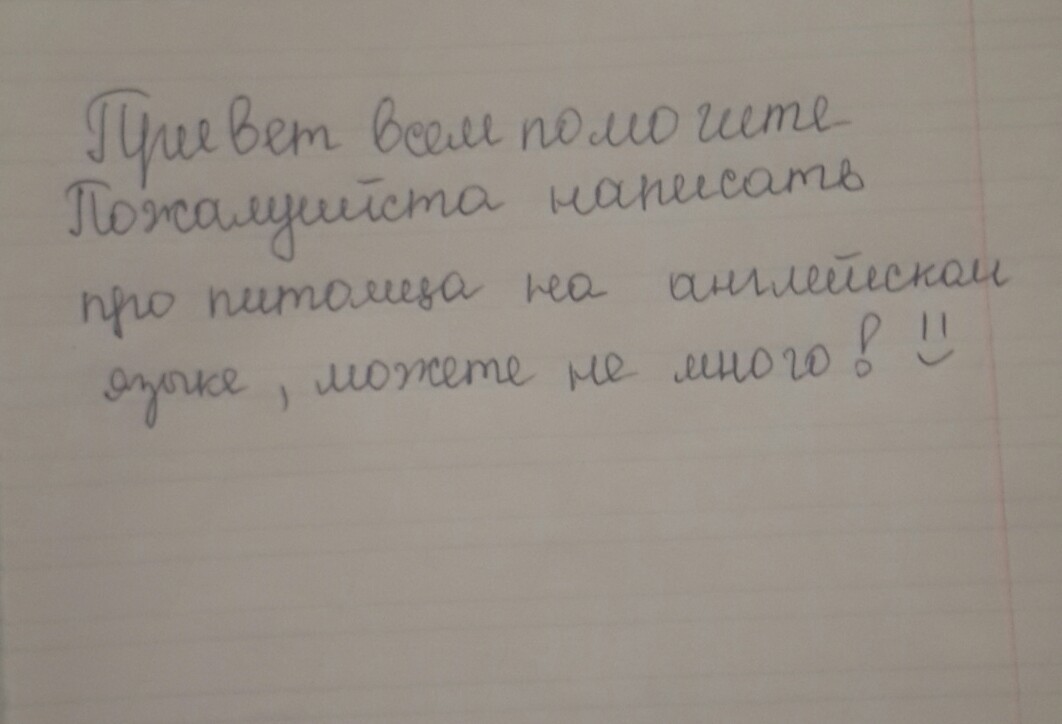 Привет всем помогите
Пожалуййста написать
про питомца на английском
языке, можете не много! !!